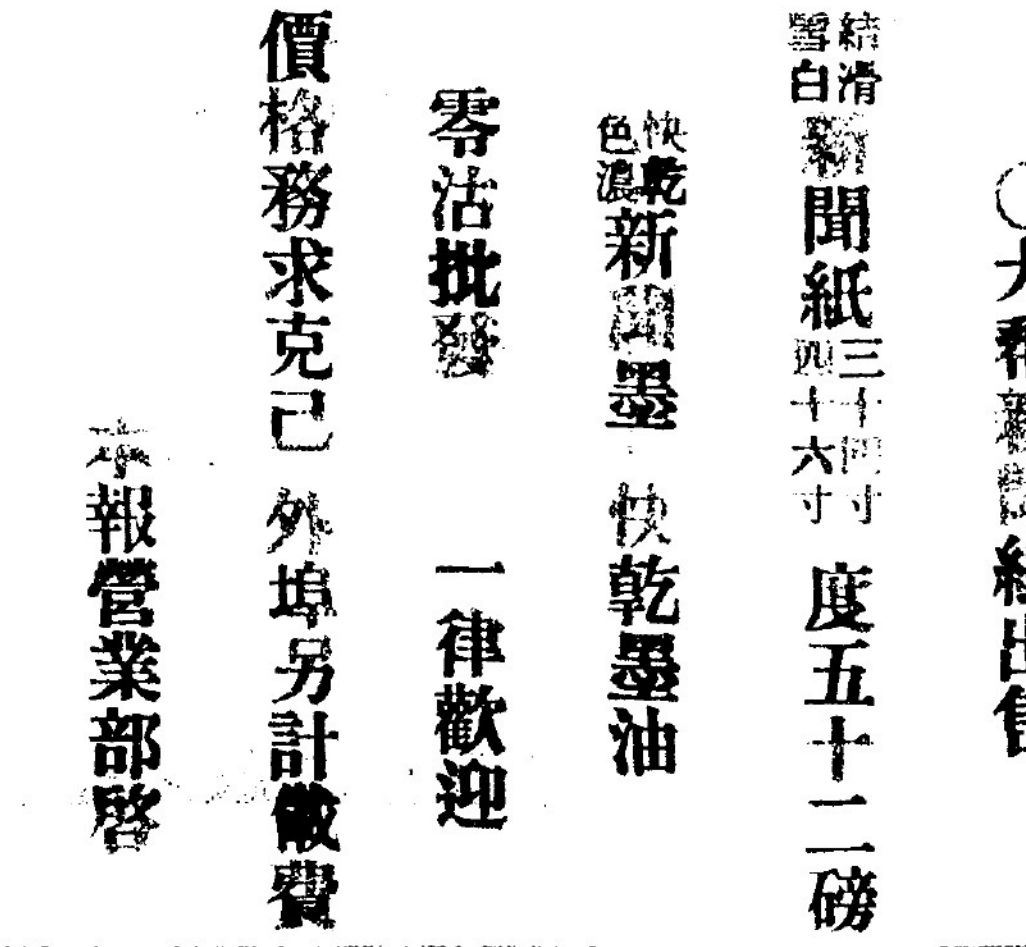 ○大和新聞紙出售
結滑雪白新聞紙三十四寸四十六寸 度五十二磅
快乾色濃新聞墨 快乾墨油
零沽批發 一律歡迎
價格務求克己 外埠另計儎費
本報營業部啓